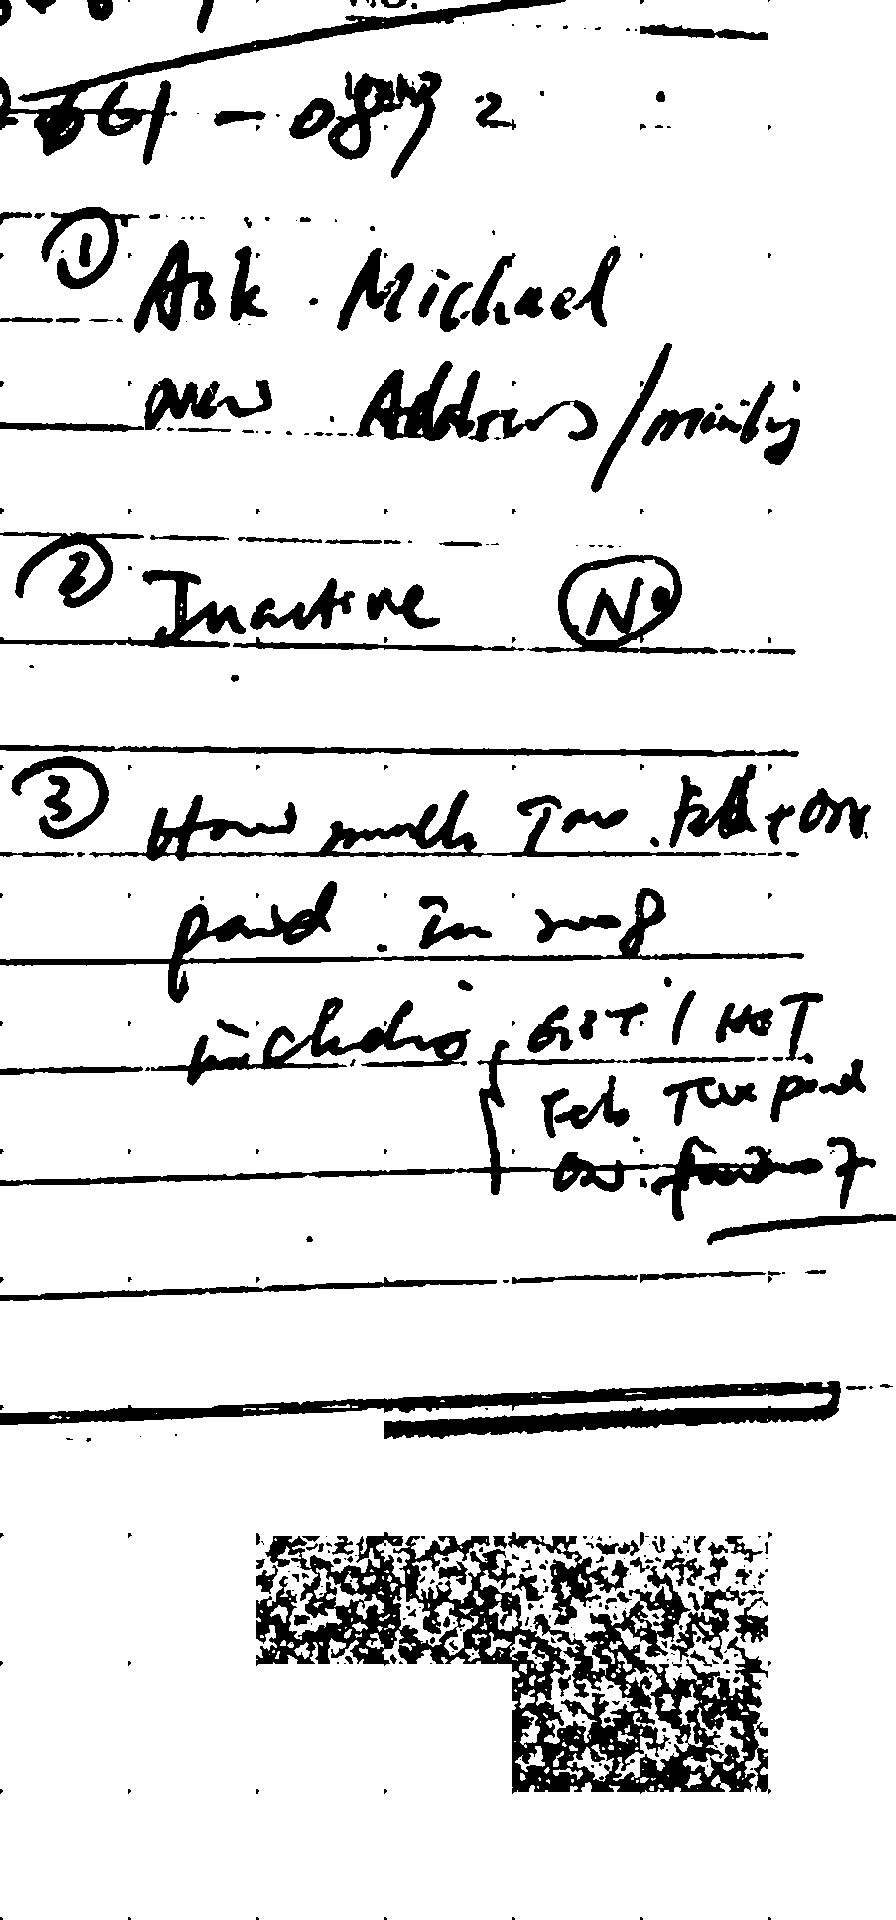 NO.
① Ask Michael
new Address / mailing
② Inactive No
③ How much Tax Fed + Ont
paid in 2008
including GST / HST
Fed Tax paid
on